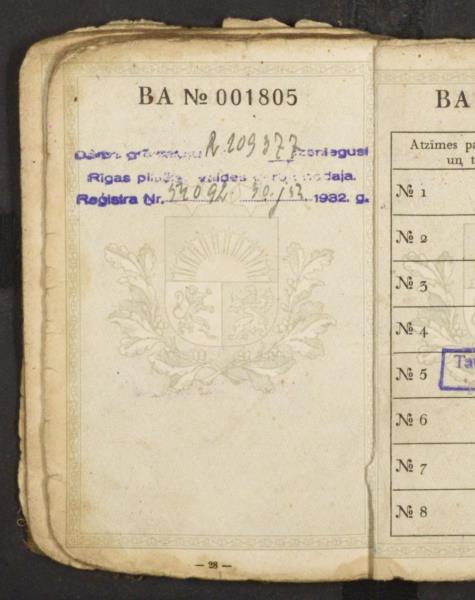 BA № 001805
Darba grāmatiņu R 109377 izsniegusi
Rīgas pilsētas valdes nodaļa.
Reģistra Nr. 1932. g.
— 28 —
BA
Atzīmes pa
un t
№ 1
№ 2
№ 3
№ 4
№ 5
Ta
№ 6
№ 7
№ 8